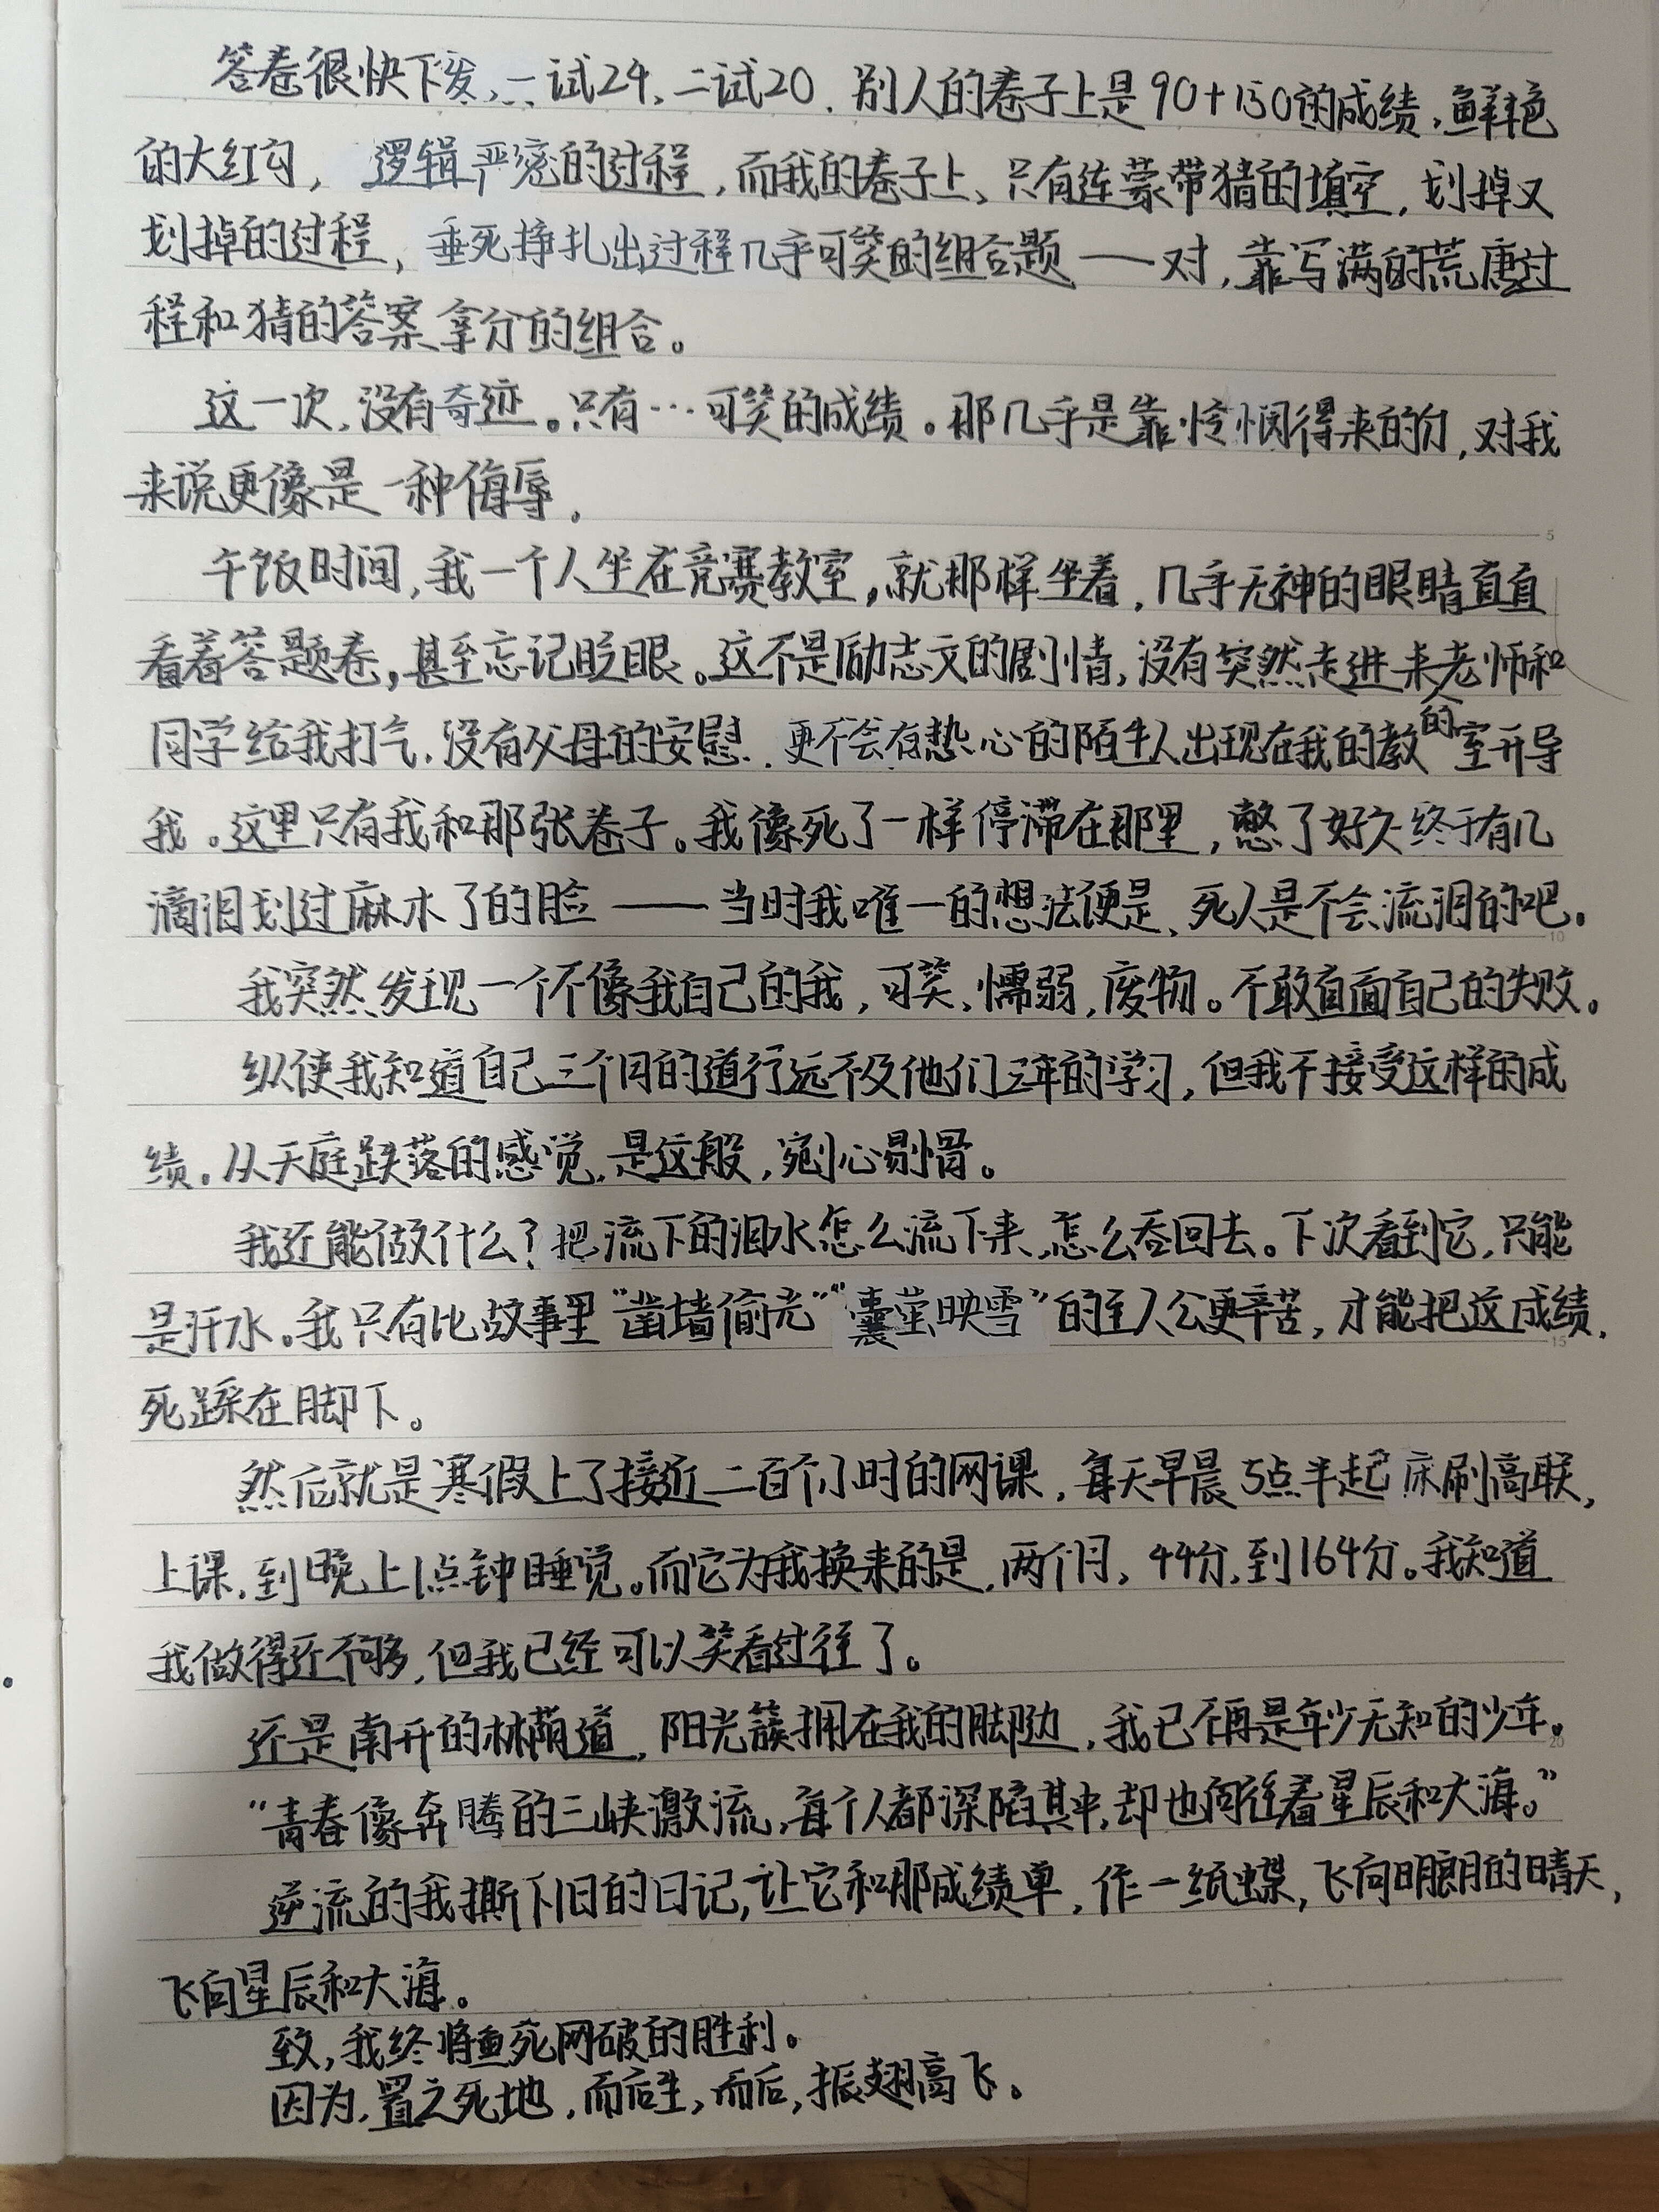 答卷很快下发,一试24,二试20.别人的卷子上是90+130的成绩,鲜艳
的大红勾,逻辑严密的过程,而我的卷子上,只有连蒙带猜的填空,划掉又
划掉的过程,垂死挣扎出过程几乎可笑的组合题——对,靠写满的荒唐过
程和猜的答案拿分的组合。
这一次,没有奇迹。只有…可笑的成绩。那几乎是靠怜悯得来的分,对我
来说更像是一种侮辱.
5
午饭时间,我一个人坐在竞赛教室,就那样坐着,几乎无神的眼睛直直
看着答题卷,甚至忘记眨眼。这不是励志文的剧情,没有突然走进来的老师和
同学给我打气,没有父母的安慰.更不会有热心的陌生人出现在我的教室开导
我。这里只有我和那张卷子。我像死了一样停滞在那里,憋了好久终于有几
滴泪划过麻木了的脸——当时我唯一的想法便是,死人是不会流泪的吧.
10
我突然发现一个不像我自己的我,可笑,懦弱,废物。不敢直面自己的失败。
纵使我知道自己三个月的道行远不及他们三年的学习,但我不接受这样的成
绩。从天庭跌落的感觉,是这般,剜心剔骨。
我还能做什么?把流下的泪水怎么流下来,怎么吞回去。下次看到它,只能
是汗水。我只有比故事里“凿墙偷光”“囊萤映雪”的主人公更辛苦,才能把这成绩,
15
死踩在脚下。
然后就是寒假上了接近二百个小时的网课,每天早晨5点半起床刷高联,
上课,到晚上1点钟睡觉。而它为我换来的是,两个月,44分,到164分。我知道
我做得还不够,但我已经可以笑看过往了。
还是南开的林荫道,阳光簇拥在我的脚边,我已不再是年少无知的少年。
20
“青春像奔腾的三峡激流,每个人都深陷其中,却也向往着星辰和大海。”
逆流的我撕下旧的日记,让它和那成绩单,作一纸蝶,飞向明朗的晴天,
飞向星辰和大海。
致,我终将鱼死网破的胜利。
因为,置之死地,而后生,而后,振翅高飞。